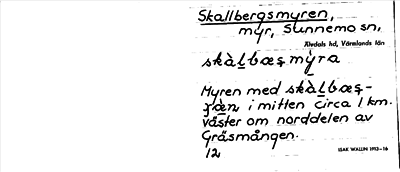 Skallbergsmyren,
myr, Sunnemo sn,
Älvdals hd, Värmlands län
Myren med
i mitten circa 1 km.
väster om norddelen av
Gräsmången.
12
ISAK WALLIN 1913–16